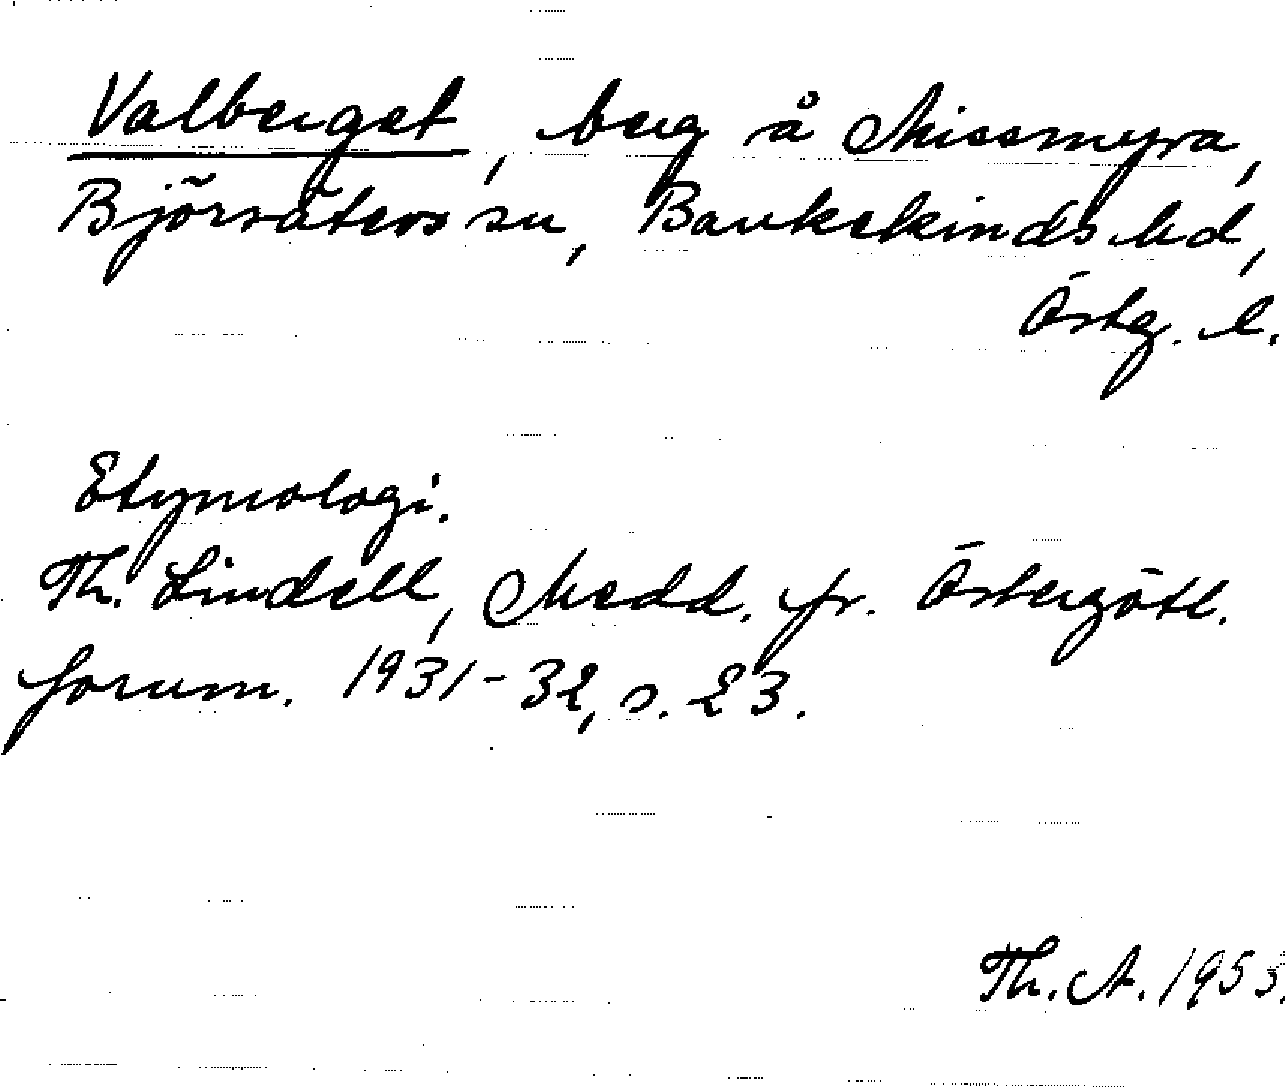 Valberget, berg å Missmyra,
Björsäters sn, Bankekinds hd,
Östg. l.
Etymologi.
Th. Lindell, Medd. fr. Östergötl.
fornm. 1931-32, s. 23.
Th. A. 1953.